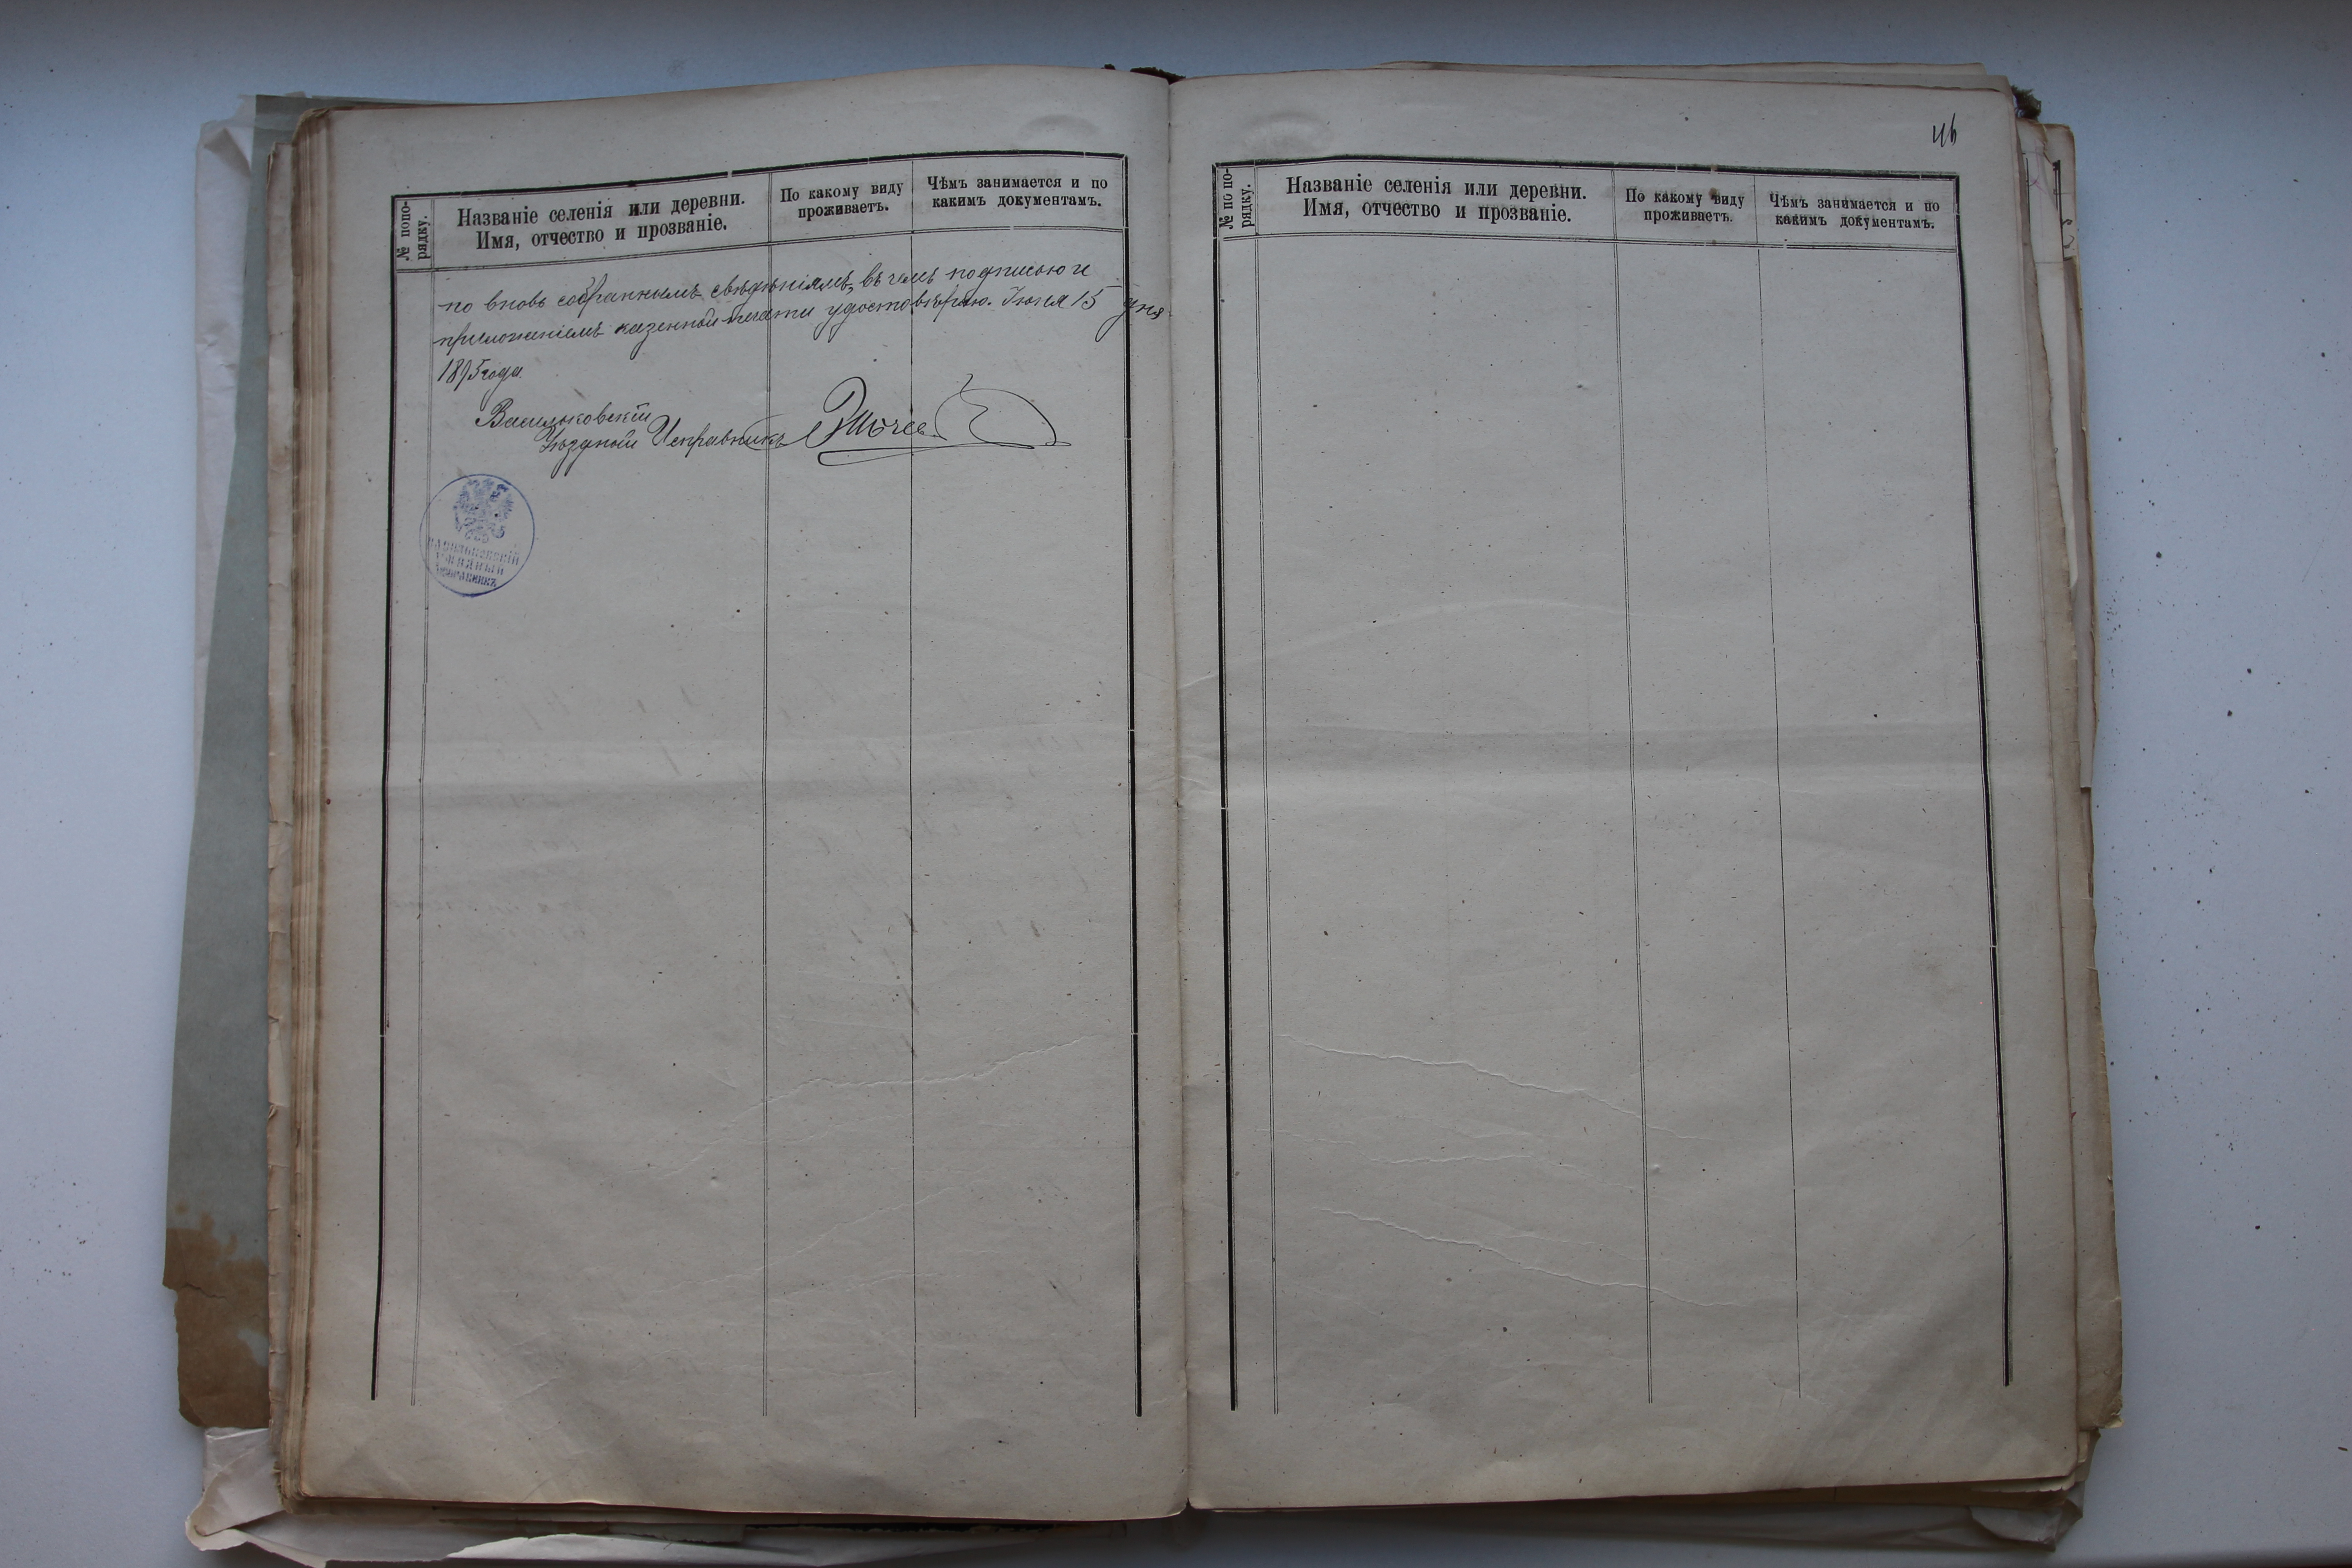 № по по-
рядку.
Названіе селенія или деревни.
Имя, отчество и прозваніе.
По какому виду
проживаетъ.
Чѣмъ занимается и по
какимъ документамъ.
по вновь собраннымъ свѣдѣніямъ, въ чемъ подписью и
приложеніемъ казенной печати удостовѣряю. Іюня 15 дня
1895 года.
Васильковскій
Уѣздный Исправникъ
ВАСИЛЬКОВСКІЙ
УѢЗДНЫЙ
ИСПРАВНИКЪ
46
№ по по-
рядку.
Названіе селенія или деревни.
Имя, отчество и прозваніе.
По какому виду
проживаетъ.
Чѣмъ занимается и по
какимъ документамъ.